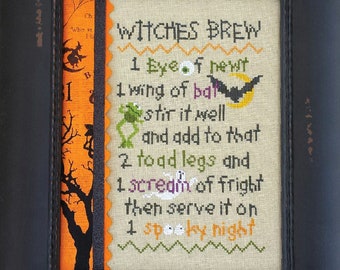 WITCHES BREW
1 Eye of newt
1 wing of bat
stir it well
and add to that
2 toad legs and
1 scream of fright
then serve it on
1 spooky night